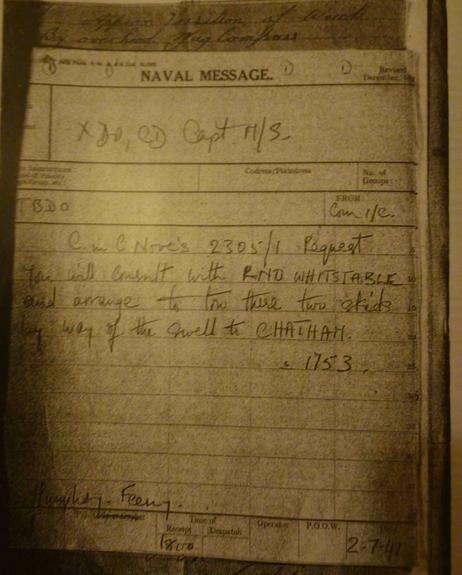 expose Position of Wreck
By overhead Mag Compass
NAVAL MESSAGE.
Revised
December,
XDO, CD Capt. M/S.
Instructions
Codress/Plaindress
No. of
Groups:
TBDO
FROM
Com i/c.
C in C Nore's 2305/1 Request
You will consult with RNO WHITSTABLE
and arrange to tow these two skids
by way of the swell to CHATHAM.
1753.
Humphrey - Feeny.
Time of
Receipt
Despatch
Operator
P.O.O.W.
1800
2-7-41